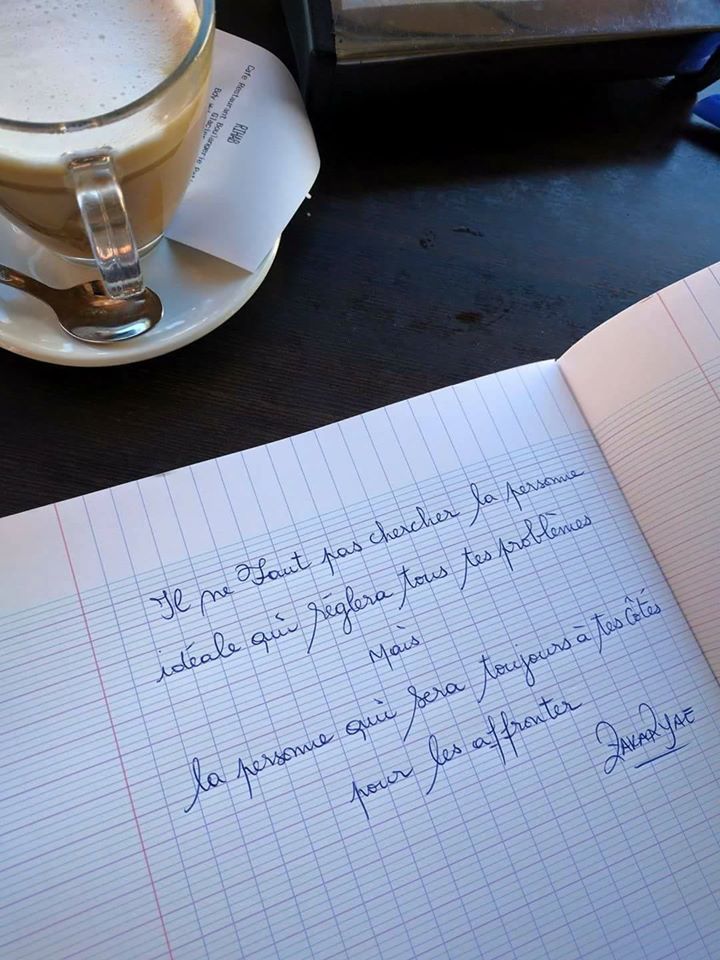 Cafe Restaurant Boulangerie
RIHAB
Il ne Faut pas chercher la personne
idéale qui réglera tous tes problèmes
Mais
la personne qui sera toujours à tes côtés
pour les affronter
ZAKARYAE